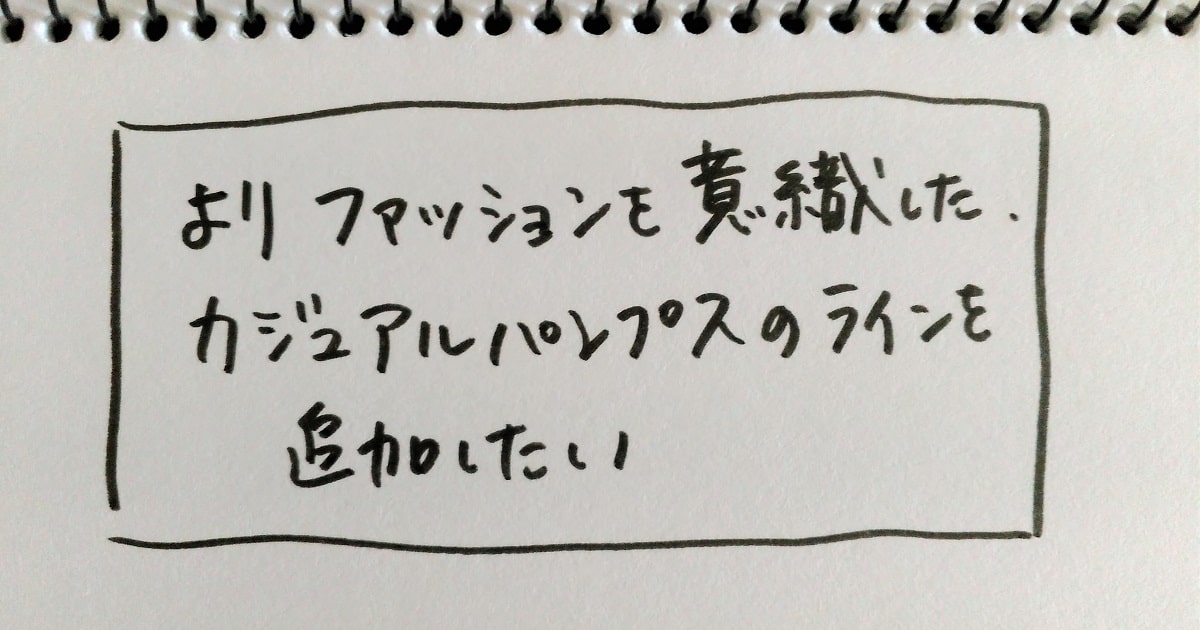 より ファッションを意織した.
カジュアルパンプスのラインを
追加したい